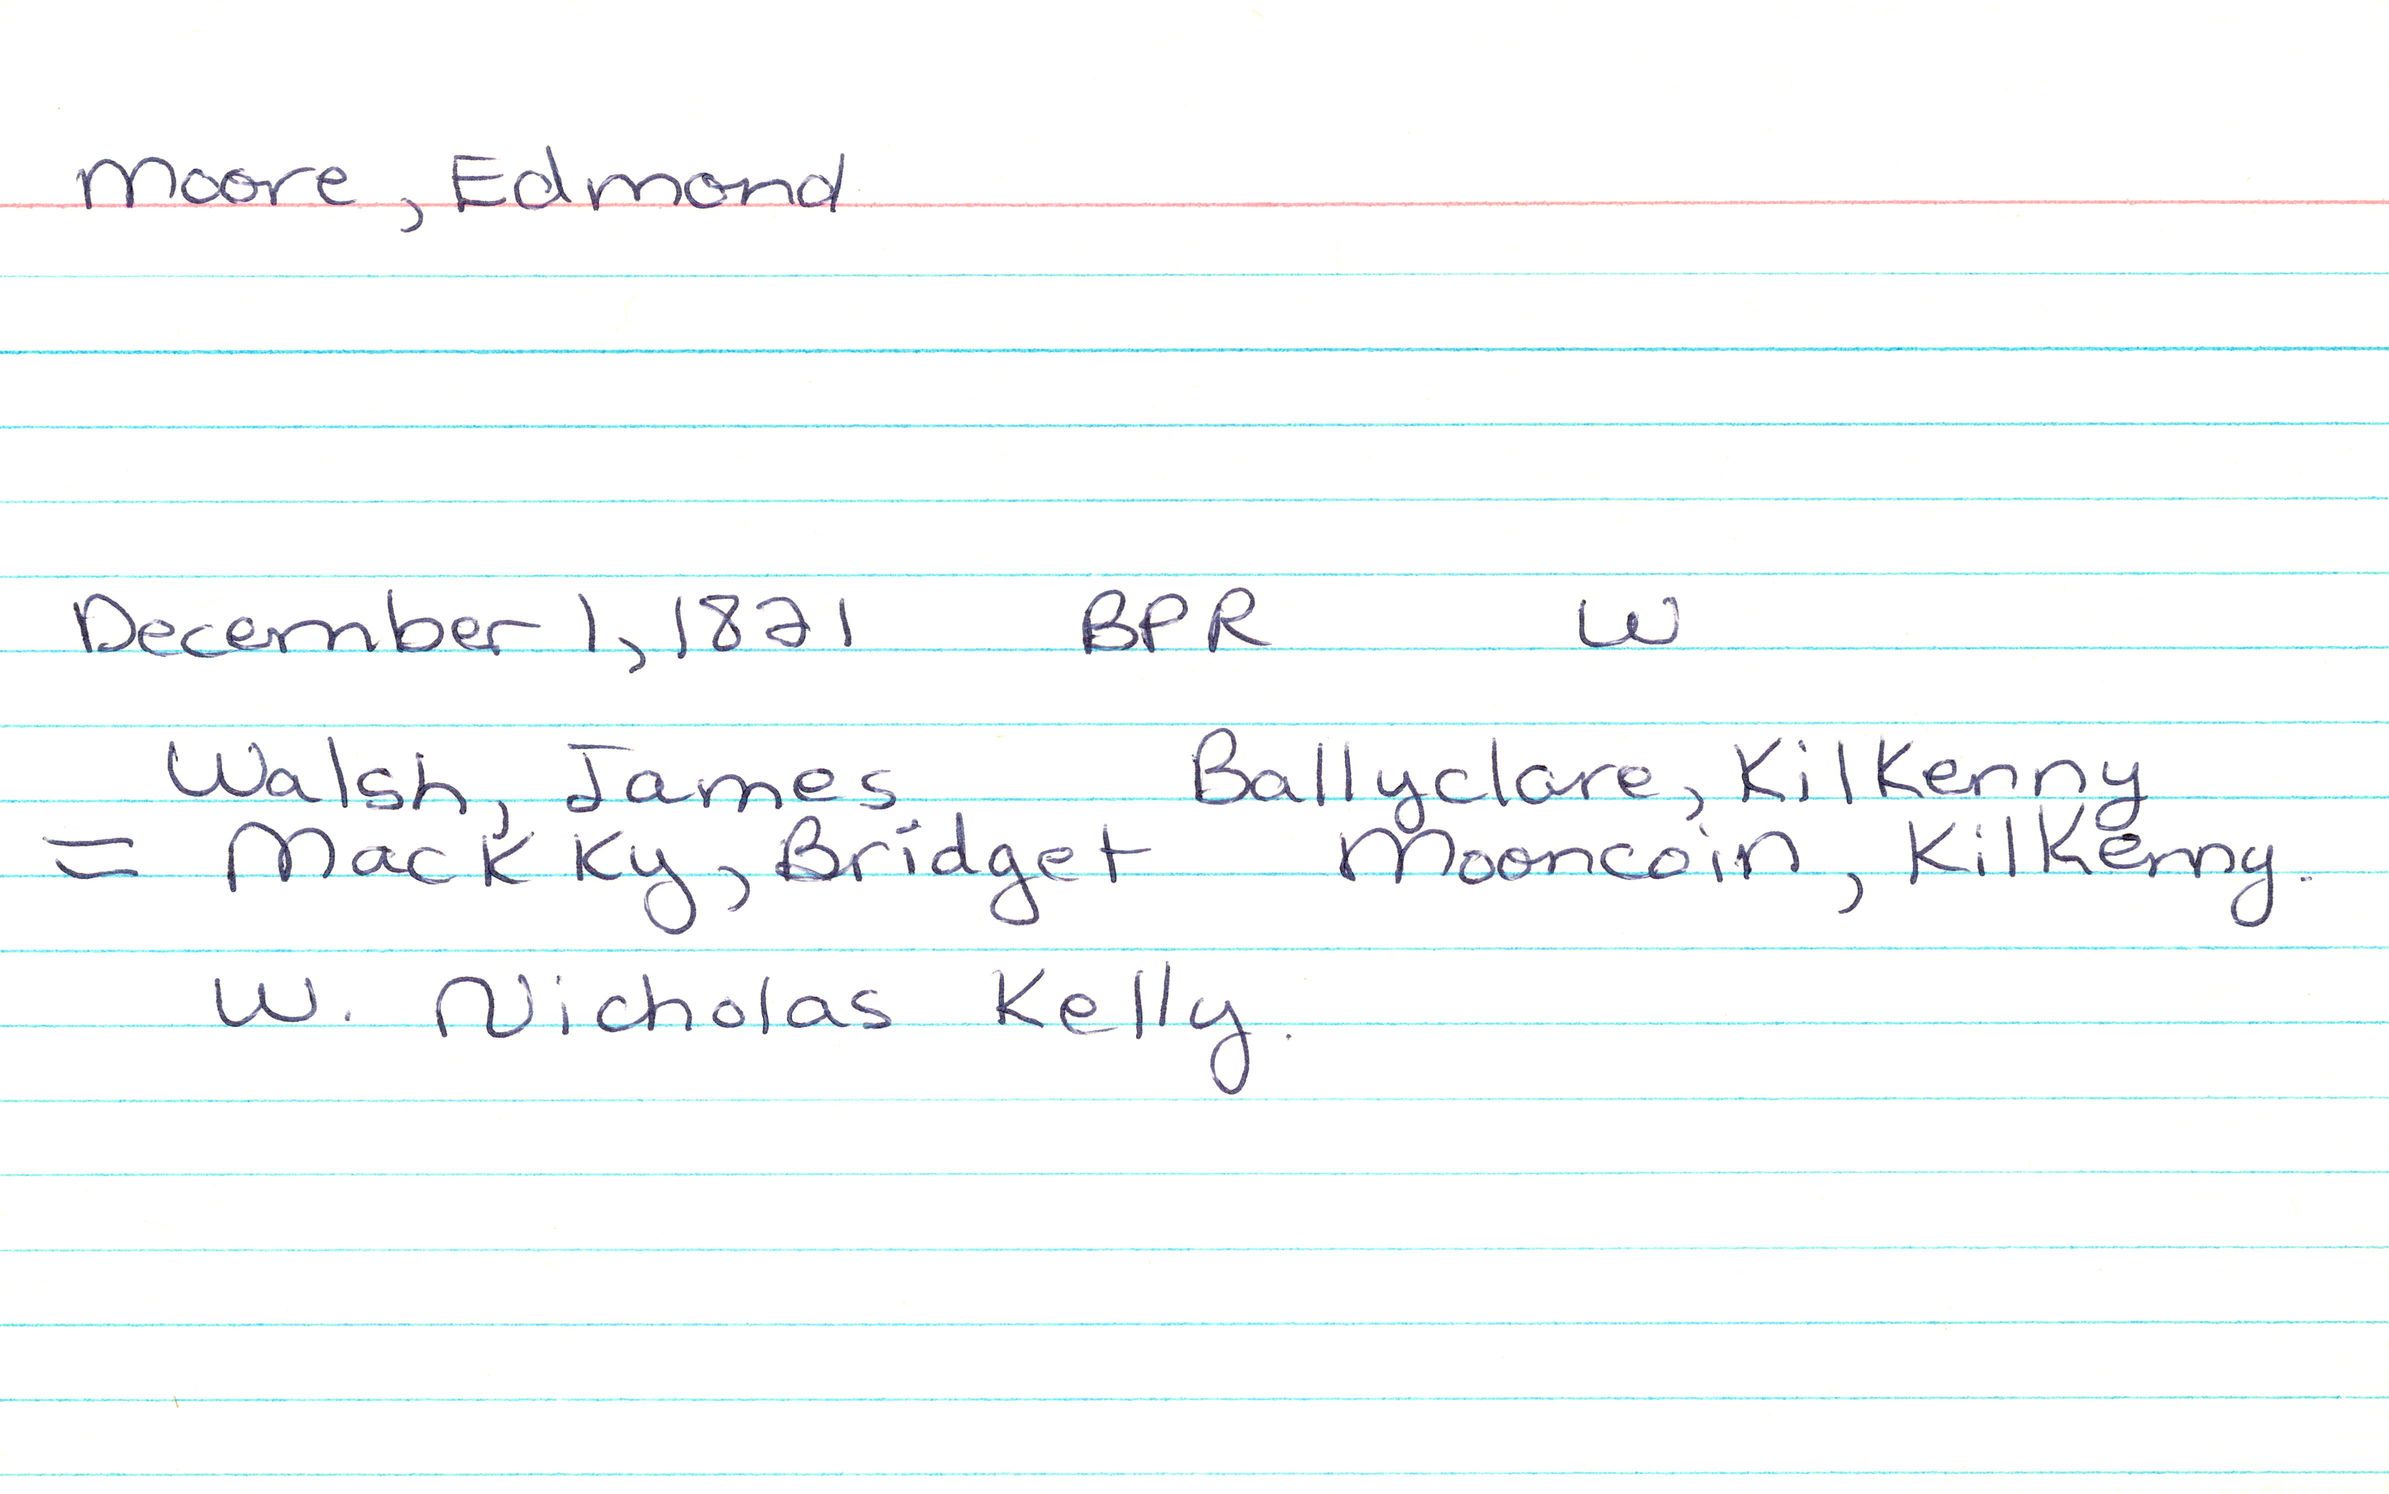 Moore, Edmond
December 1, 1821 BPR W
Walsh, James Ballyclare, Kilkenny
= Mackky, Bridget Mooncoin, Kilkenny.
W. Nicholas Kelly.